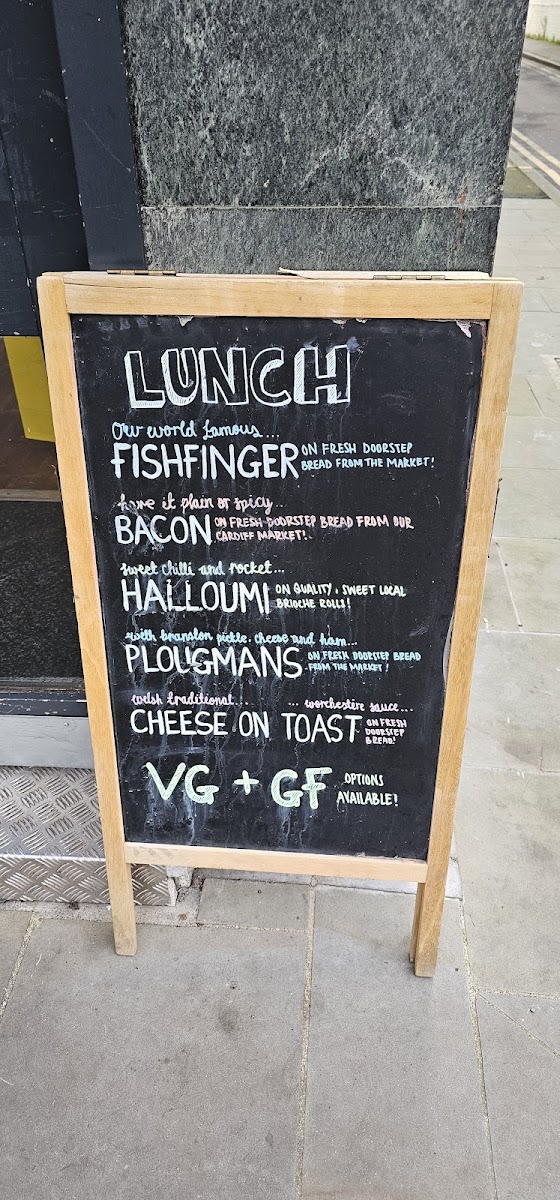 LUNCH
Our world famous...
FISHFINGER ON FRESH DOORSTEP
BREAD FROM THE MARKET!
have it plain or spicy...
BACON ON FRESH DOORSTEP BREAD FROM OUR
CARDIFF MARKET!.
sweet chilli and rocket...
HALLOUMI ON QUALITY, SWEET LOCAL
BRIOCHE ROLLS!
with branston pickle, cheese and ham...
PLOUGMANS ON FRESH DOORSTEP BREAD
FROM THE MARKET!
welsh traditional... ... worchestire sauce...
CHEESE ON TOAST ON FRESH
DOORSTEP
BREAD!
VG + GF OPTIONS
AVAILABLE!